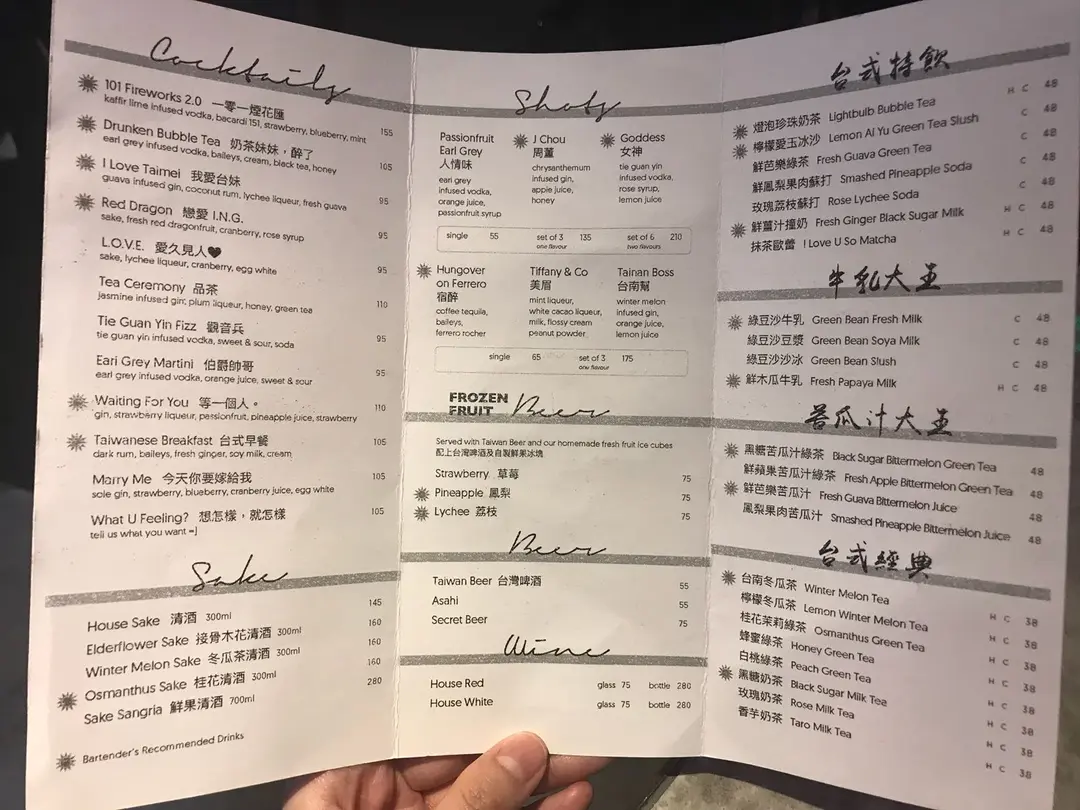 Cocktails
101 Fireworks 2.0 一零一煙花匯
kaffir lime infused vodka, bacardi 151, strawberry, blueberry, mint 155
Drunken Bubble Tea 奶茶妹妹，醉了
earl grey infused vodka, baileys, cream, black tea, honey 105
I Love Taimei 我愛台妹
guava infused gin, coconut rum, lychee liqueur, fresh guava 95
Red Dragon 戀愛 I.N.G.
sake, fresh red dragonfruit, cranberry, rose syrup 95
L.O.V.E. 愛久見人♥
sake, lychee liqueur, cranberry, egg white 95
Tea Ceremony 品茶
jasmine infused gin, plum liqueur, honey, green tea 110
Tie Guan Yin Fizz 觀音兵
tie guan yin infused vodka, sweet & sour, soda 95
Earl Grey Martini 伯爵帥哥
earl grey infused vodka, orange juice, sweet & sour 95
Waiting For You 等一個人。
gin, strawberry liqueur, passionfruit, pineapple juice, strawberry 110
Taiwanese Breakfast 台式早餐
dark rum, baileys, fresh ginger, soy milk, cream 105
Marry Me 今天你要嫁給我
sole gin, strawberry, blueberry, cranberry juice, egg white 105
What U Feeling? 想怎樣，就怎樣 105
tell us what you want =]
Sake
House Sake 清酒 300ml 145
Elderflower Sake 接骨木花清酒 300ml 160
Winter Melon Sake 冬瓜茶清酒 300ml 160
Osmanthus Sake 桂花清酒 300ml 160
Sake Sangria 鮮果清酒 700ml 280
Bartender's Recommended Drinks
Shots
Passionfruit
Earl Grey
人情味
earl grey
infused vodka,
orange juice,
passionfruit syrup
J Chou
周董
chrysanthemum
infused gin,
apple juice,
honey
Goddess
女神
tie guan yin
infused vodka,
rose syrup,
lemon juice
single 55 set of 3 135 set of 6 210
one flavour two flavours
Hungover
on Ferrero
宿醉
coffee tequila,
baileys,
ferrero rocher
Tiffany & Co
美眉
mint liqueur,
white cacao liqueur,
milk, flossy cream
peanut powder
Tainan Boss
台南幫
winter melon
infused gin,
orange juice,
lemon juice
single 65 set of 3 175
one flavour
FROZEN
FRUIT Beer
Served with Taiwan Beer and our homemade fresh fruit ice cubes
配上台灣啤酒及自製鮮果冰塊
Strawberry 草莓 75
Pineapple 鳳梨 75
Lychee 荔枝 75
Beer
Taiwan Beer 台灣啤酒 55
Asahi 55
Secret Beer 75
Wine
House Red glass 75 bottle 280
House White glass 75 bottle 280
台式特飲
燈泡珍珠奶茶 Lightbulb Bubble Tea H C 48
檸檬愛玉冰沙 Lemon Ai Yu Green Tea Slush C 48
鮮芭樂綠茶 Fresh Guava Green Tea C 48
鮮鳳梨果肉蘇打 Smashed Pineapple Soda C 48
玫瑰荔枝蘇打 Rose Lychee Soda C 48
鮮薑汁撞奶 Fresh Ginger Black Sugar Milk H C 48
抹茶歐蕾 I Love U So Matcha H C 48
牛乳大王
綠豆沙牛乳 Green Bean Fresh Milk C 48
綠豆沙豆漿 Green Bean Soya Milk C 48
綠豆沙沙冰 Green Bean Slush C 48
鮮木瓜牛乳 Fresh Papaya Milk H C 48
苦瓜汁大王
黑糖苦瓜汁綠茶 Black Sugar Bittermelon Green Tea 48
鮮蘋果苦瓜汁綠茶 Fresh Apple Bittermelon Green Tea 48
鮮芭樂苦瓜汁 Fresh Guava Bittermelon Juice 48
鳳梨果肉苦瓜汁 Smashed Pineapple Bittermelon Juice 48
台式經典
台南冬瓜茶 Winter Melon Tea H C 38
檸檬冬瓜茶 Lemon Winter Melon Tea H C 38
桂花茉莉綠茶 Osmanthus Green Tea H C 38
蜂蜜綠茶 Honey Green Tea H C 38
白桃綠茶 Peach Green Tea H C 38
黑糖奶茶 Black Sugar Milk Tea H C 38
玫瑰奶茶 Rose Milk Tea H C 38
香芋奶茶 Taro Milk Tea H C 38